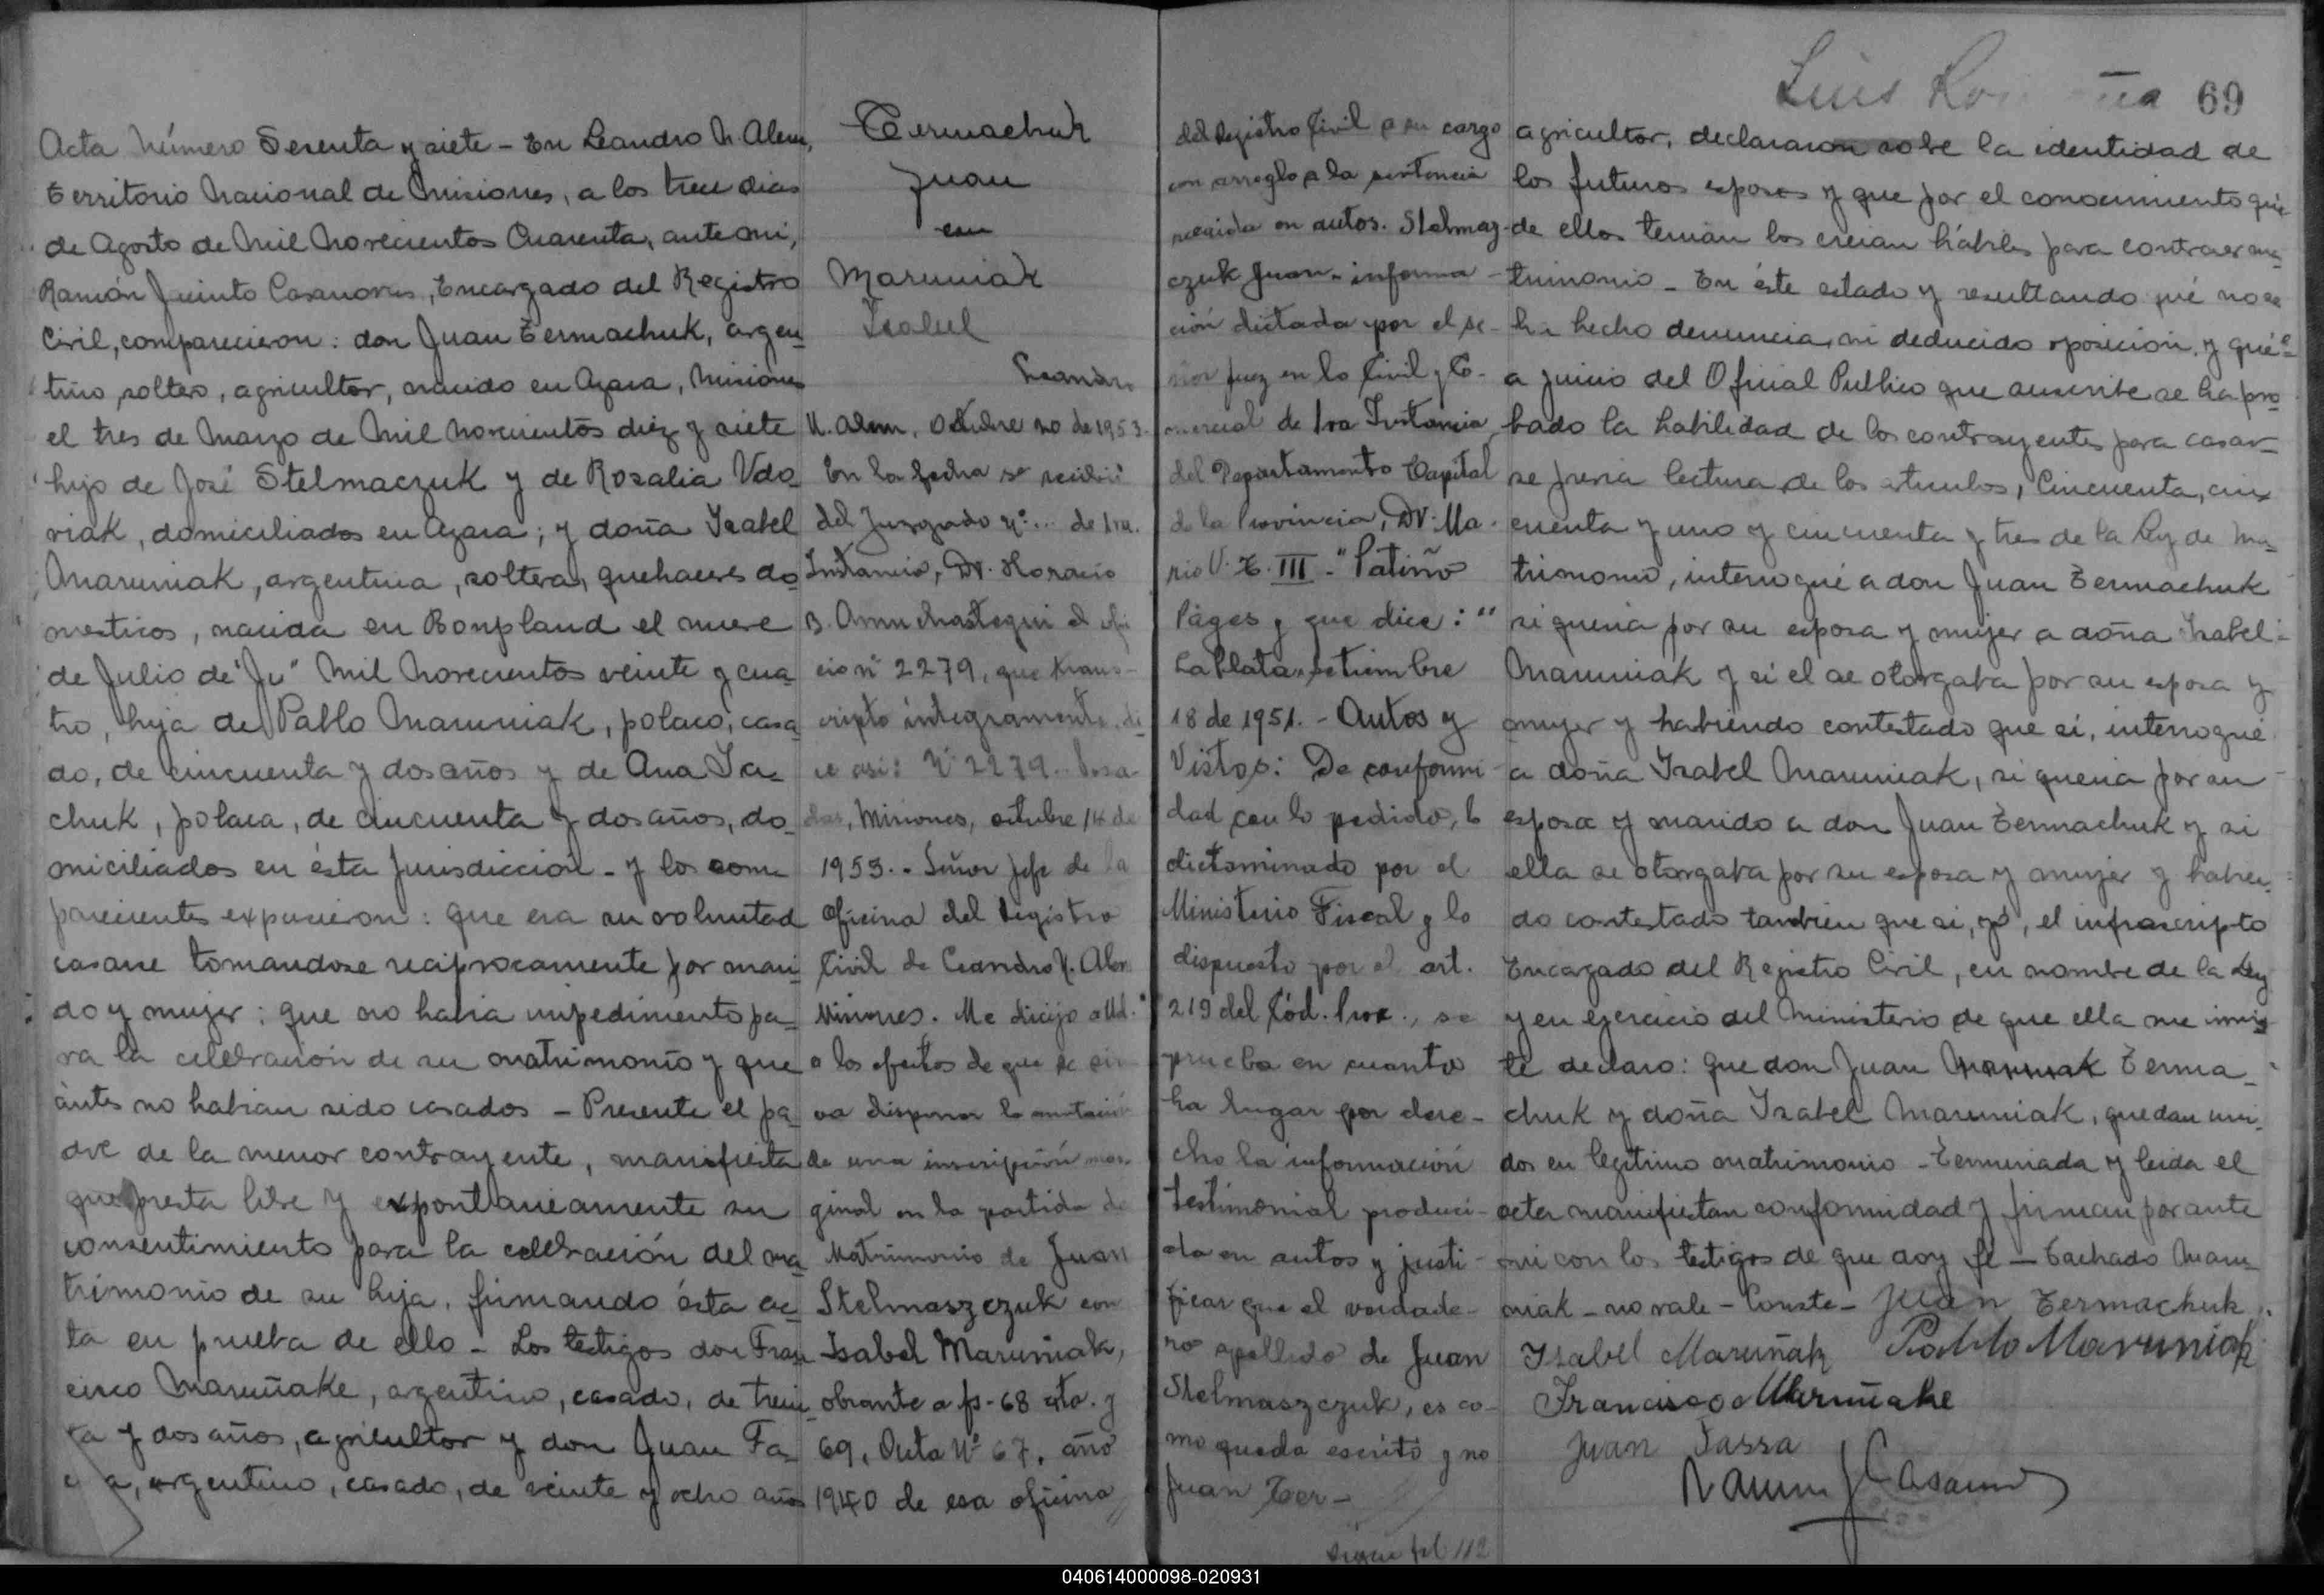 Acta Número Sesenta y siete - En Leandro N. Alem,
Territorio Nacional de Misiones, a los trece dias
de Agosto de Mil Novecientos Cuarenta, ante mi,
Ramón Jacinto Casanovas, Encargado del Registro
Civil, comparecieron: don Juan Termachuk, argen-
tino, soltero, agricultor, nacido en Azara, Misiones
el tres de Marzo de Mil Novecientos diez y siete
hijo de José Stelmaczuk y de Rosalia Vdo-
viak, domiciliados en Azara; y doña Isabel
Maruniak, argentina, soltera, quehaceres do-
mesticos, nacida en Bonpland el nueve
de Julio de "Ju" Mil Novecientos veinte y cua-
tro, hija de Pablo Maruniak, polaco, casa-
do, de cincuenta y dos años y de Ana
chuk, polaca, de cincuenta y dos años, do-
miciliados en ésta jurisdiccion - y los com-
parecientes expusieron: que era su voluntad
casarse tomandose reciprocamente por mari-
do y mujer; que no habia impedimento pa-
ra la celebración de su matrimonio y que
antes no habian sido casados - Presente el pa-
dre de la menor contrayente, manifiesta
que presta libre y expontaneamente su
consentimiento para la celebración del ma-
trimonio de su hija, firmando ésta ac-
ta en prueba de ello - Los testigos don Fran-
cisco Maruñake, argentino, casado, de trein-
ta y dos años, agricultor y don Juan Fa-
a, argentino, casado, de veinte y ocho años
Termachuk
Juan
con
Maruniak
Isabel
Leandro
N. Alem, Octubre 20 de 1953.
En la fecha se recibió
del Juzgado Nº... de 1ra.
Instancia, Dr. Horacio
B. Amuchastegui el ofi-
cio nº 2279, que trans-
cripto íntegramente di-
ce asi: Nº 2279.. Posa-
das, Misiones, octubre 14 de
1953.- Señor Jefe de la
Oficina del Registro
Civil de Leandro N. Alem
Misiones. Me dirijo a Ud.
a los efectos de que se sir-
va disponer la anotación
de una inscripción mar-
ginal en la partida de
Matrimonio de Juan
Stelmaszczuk con
Isabel Maruniak,
obrante a fs-68 vta. y
69, Acta Nº 67, año
1940 de esa oficina
del Registro Civil a su cargo
con arreglo a la sentencia
recaida en autos. Stelmaz-
czuk Juan - informa-
ción dictada por el se-
ñor Juez en lo Civil y Co-
mercial de 1ra Instancia
del Departamento Capital
de la Provincia, Dr. Ma-
rio V. III - "Patiño
Páges y que dice: "
La Plata, setiembre
18 de 1951. - Autos y
Vistos: De conformi-
dad con lo pedido, lo
dictaminado por el
Ministerio Fiscal y lo
dispuesto por el art.
219 del Cód. Proc., se
prueba en cuanto
ha lugar por dere-
cho la información
testimonial produci-
da en autos y justi-
ficar que el verdade-
ro apellido de Juan
Stelmaszczuk, es co-
mo queda escrito y no
Juan Ter-
sigue fol 112
Luis 69
agricultor, declararon sobre la identidad de
los futuros esposos y que por el conocimiento que
de ellos tenian los creian hábiles para contraer ma-
trimonio - En éste estado y resultando qué no se
ha hecho denuncia, ni deducido oposicion, y qué
a juicio del Oficial Publico que suscribe se ha pro-
bado la habilidad de los contrayentes para casar-
se previa lectura de los articulos, Cincuenta, cin-
cuenta y uno y cincuenta y tres de la Ley de Ma-
trimonio, interrogué a don Juan Termachuk
si queria por su esposa y mujer a doña Isabel
Maruniak y si el se otorgaba por su esposa y
mujer y habiendo contestado que si, interrogué
a doña Isabel Maruniak, si queria por su
esposa y marido a don Juan Termachuk y si
ella se otorgaba por su esposa y mujer y habien-
do contestado tambien que si, yo, el infrascripto
Encargado del Registro Civil, en nombre de la Ley
y en ejercicio del Ministerio de que ella me invis-
te declaro: que don Juan Maruniak Terma-
chuk y doña Isabel Maruniak, quedan uni-
dos en legitimo matrimonio - Terminada y leida el
acta manifiestan conformidad y firman por ante
mi con los testigos de que doy fé - Tachado Maru-
niak - no vale - Conste - Juan Termachuk
Ysabel Maruñak Pablo Maruniak
Francisco Maruñake
Juan Fassa
Ramon J Casanovas
040614000098-020931